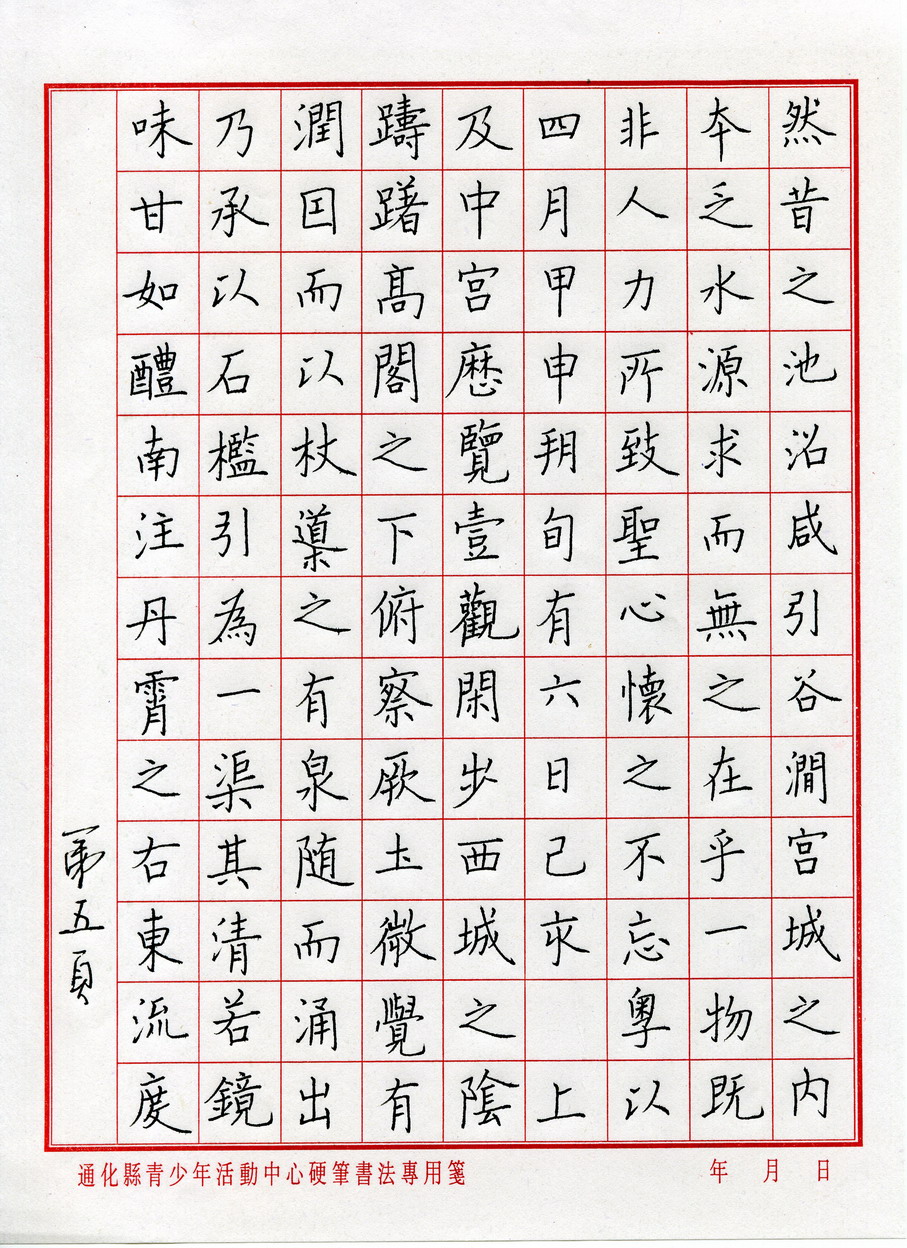 然昔之池沼咸引谷澗宫城之内
本乏水源求而無之在乎一物既
非人力所致聖心懷之不忘粵以
四月甲申朔旬有六日己亥 上
及中宫歷覽臺觀閑步西城之陰
躊躇高閣之下俯察厥土微覺有
潤因而以杖導之有泉随而涌出
乃承以石檻引為一渠其清若鏡
味甘如醴南注丹霄之右東流度
第五頁
通化縣青少年活動中心硬筆書法專用箋
年 月 日